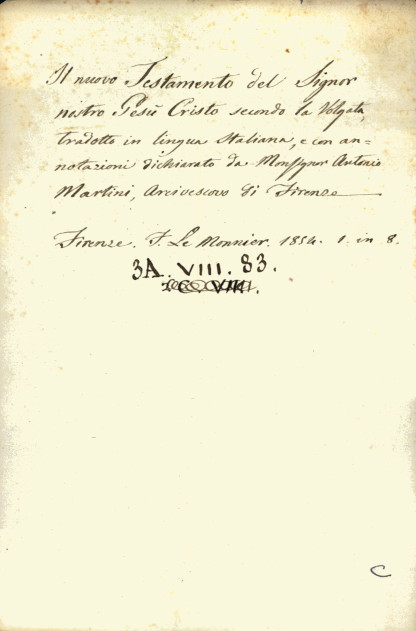 Il nuovo Testamento del Signor
nostro Gesù Cristo secondo la Volgata,
tradotto in lingua Italiana, e con an=
notazioni dichiarato da Monsignor Antonio
Martini, Arcivescovo di Firenze
Firenze. F. Le Monnier. 1854. 1. in 8.
3A. VIII. 83.
C